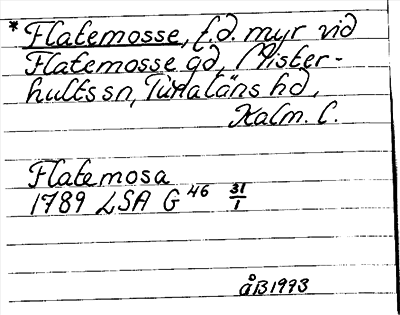 * Flatemosse, f.d. myr vid
Flatemosse gd, Mister-
hults sn, Tunaläns hd,
Kalm. l.
Flatemosa
1789 LSA G 46 31/1
ÅB 1973